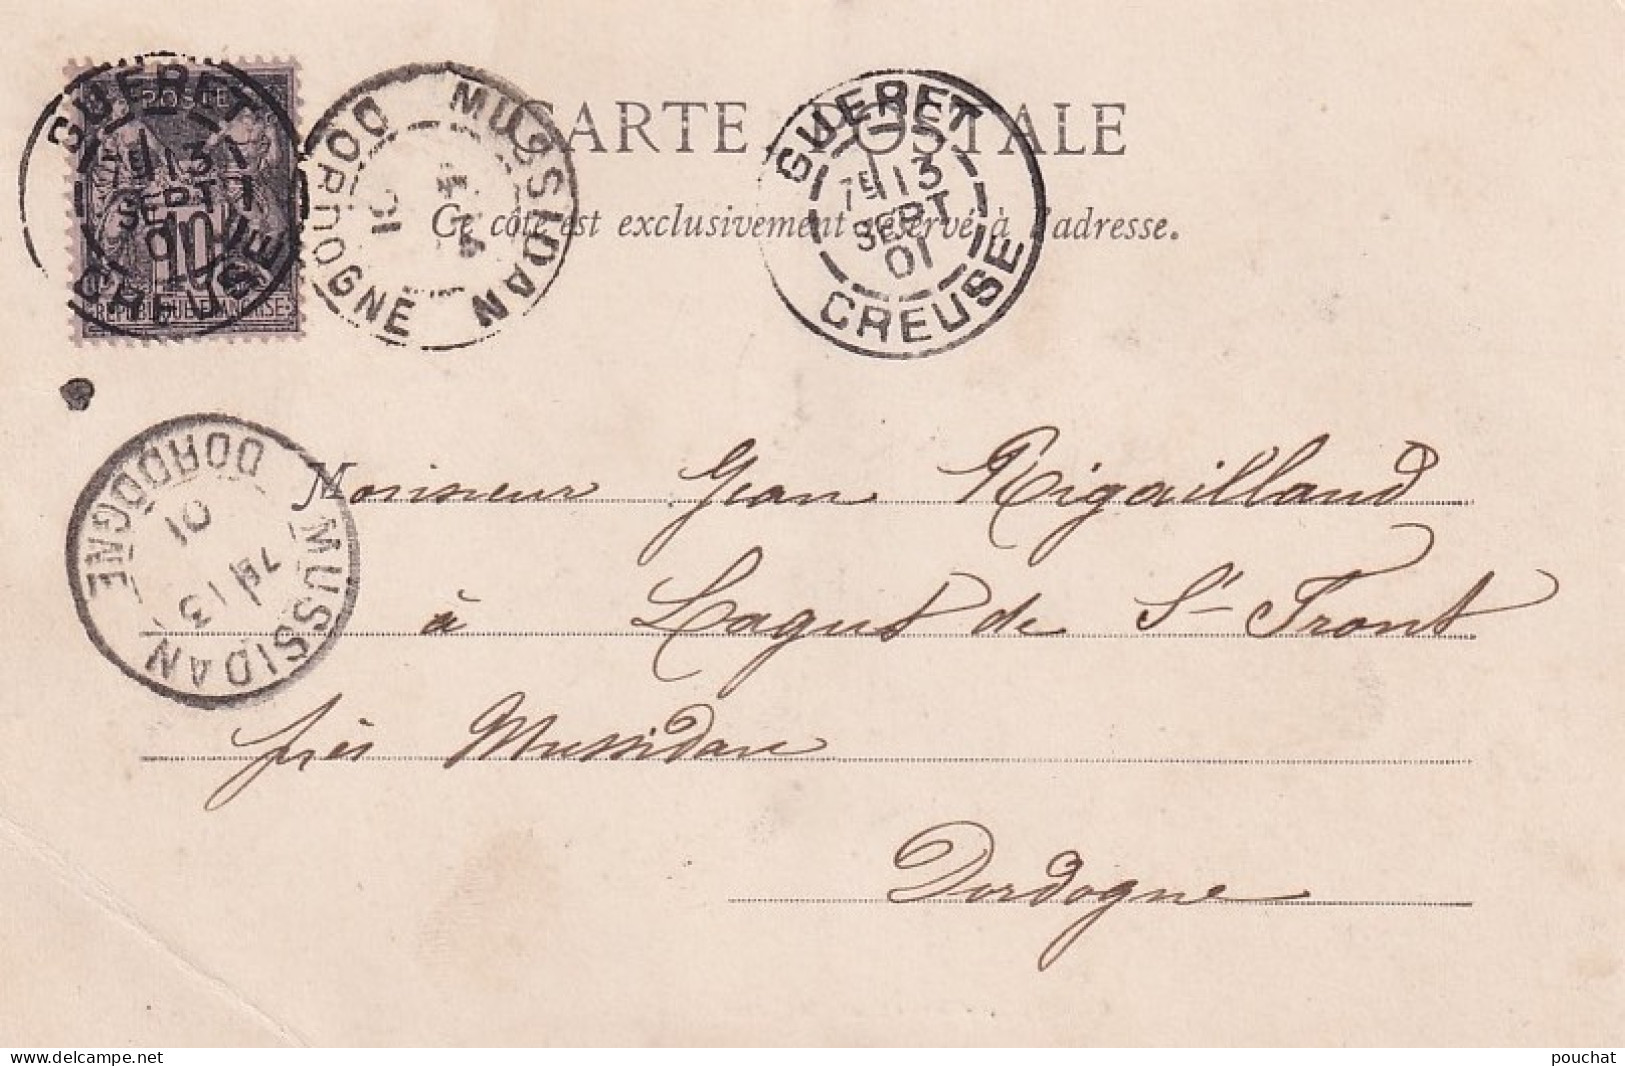 POSTE
10
REPUBLIQUE FRANÇAISE
GUERET
7E 13
SEPT
01
CREUSE
MUSSIDAN
01
DORDOGNE
CARTE POSTALE
GUERET
7E 13
SEPT
01
CREUSE
Ce côté est exclusivement réservé à l'adresse.
MUSSIDAN
7E 13
01
DORDOGNE
Monsieur Jean Rigailland
à Lagut de St Front
près Mussidan
Dordogne
delcampe.net
pouchat